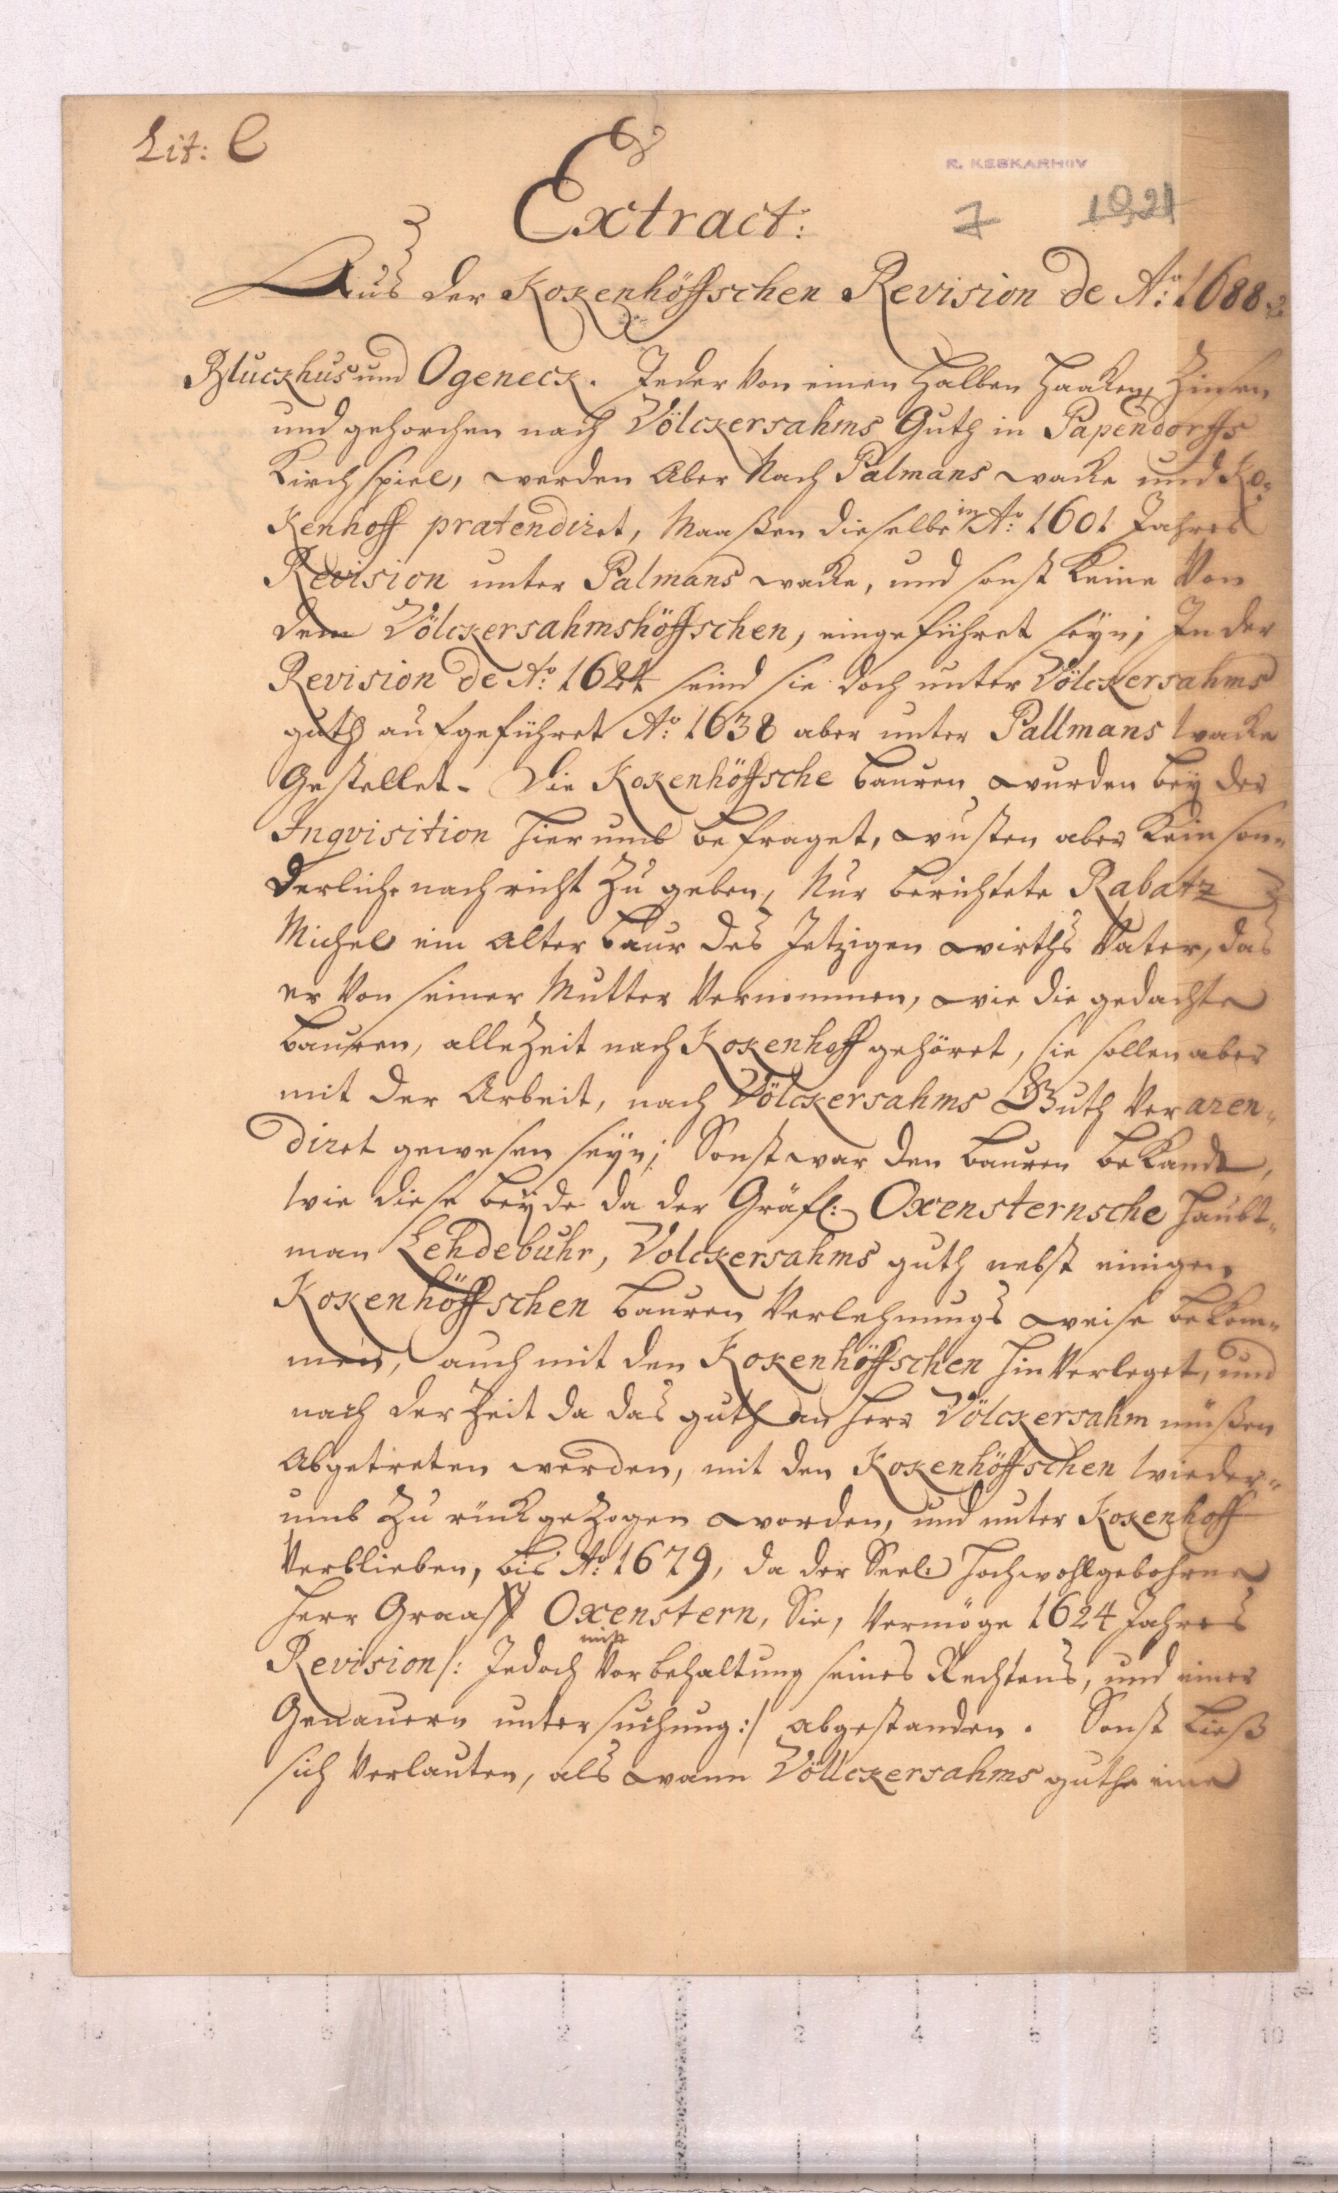 Lit: C
R. KEBKARHIIV
Extract:
7 1921
Aus der Kokenhöffschen Revision de Aō: 1688
Bluckhus und Ogeneck. Jeder von einen halben Haaken, Zinsen
und gehorchen nach Völckersahms Guth in Papendorffs
Kirchspiel, werden aber nach Palmans wacke und Ko-
kenhoff prætendiret, Maaßen dieselbe in Aō: 1601 Jahres
Revision unter Palmans wacke, und sonst keine von
dem Völckersahmshöffschen, eingeführet seyn; In der
Revision de Aō: 1624 seind sie doch unter Völckersahms
guth aufgeführet Aō: 1638 aber unter Pallmans wacke
Gestellet. Die Kokenhöffsche bauren wurden bey der
Inqvisition hierumb befraget, wusten aber kein son-
derliche nachricht zu geben, Nur berichtete Rabatz
Michel ein alter baur des Jetzigen wirths Vater, das
er von seiner Mutter vernommen, wie die gedachte
bauren, allezeit nach Kokenhoff gehöret, sie sollen aber
mit der Arbeit, nach Völckersahms Guth veraren-
diret gewesen seyn; Sonst war den bauren bekandt,
wie diese beyde da der Gräfl: Oxensternsche Haubt-
man Lehdebuhr, Volckersahms guth nebst einigen
Kokenhöffschen bauren verlehnungs weise bekom-
men, auch mit den Kokenhöffschen hin verleget, und
nach der Zeit da das guth an Herr Völckersahm müßen
abgetreten werden, mit den Kokenhöffschen wieder-
umb zurückgezogen worden, und unter Kokenhoff
verblieben, bis Aō: 1679, da der Seel: Hochwohlgebohrne
Herr Graaff Oxenstern, Sie, vermöge 1624 Jahres
Revision /: Jedoch mit Vorbehaltung seines Rechtens, und einer
Genauern untersuchung :/ abgestanden. Sonst ließ
sich verlauten, als wann Völlckersahms guthe eine